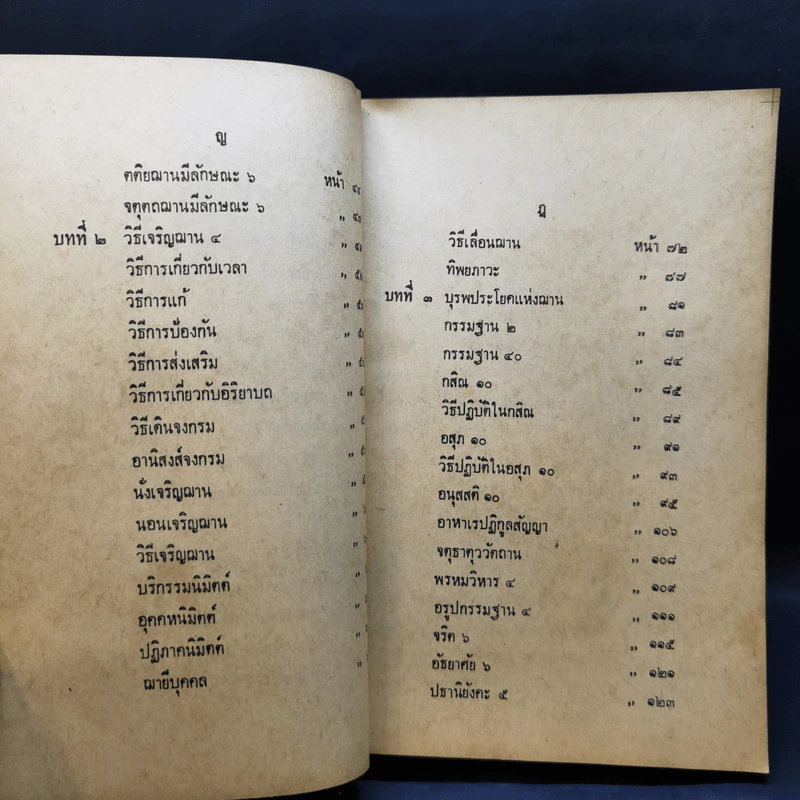 ญ
ตติยฌานมีลักษณะ ๖ หน้า
จตุตถฌานมีลักษณะ ๖ ”
บทที่ ๒ วิธีเจริญฌาน ๔ ”
วิธีการเกี่ยวกับเวลา ”
วิธีการแก้ ”
วิธีการป้องกัน ”
วิธีการส่งเสริม ”
วิธีการเกี่ยวกับอิริยาบถ ”
วิธีเดินจงกรม ”
อานิสงส์จงกรม ”
นั่งเจริญฌาน ”
นอนเจริญฌาน ”
วิธีเจริญฌาน ”
บริกรรมนิมิตต์ ”
อุคคหนิมิตต์ ”
ปฏิภาคนิมิตต์ ”
ฌายีบุคคล
ฎ
วิธีเลื่อนฌาน หน้า ๗๒
ทิพยภาวะ ” ๗๗
บทที่ ๓ บุรพประโยคแห่งฌาน ” ๘๑
กรรมฐาน ๒ ” ๘๓
กรรมฐาน ๔๐ ” ๘๔
กสิณ ๑๐ ” ๘๕
วิธีปฏิบัติในกสิณ ” ๘๙
อสุภ ๑๐ ” ๙๑
วิธีปฏิบัติในอสุภ ๑๐ ” ๙๓
อนุสสติ ๑๐ ” ๙๕
อาหาเรปฏิกูลสัญญา ” ๑๐๖
จตุธาตุววัตถาน ” ๑๐๘
พรหมวิหาร ๔ ” ๑๐๙
อรูปกรรมฐาน ๔ ” ๑๑๑
จริต ๖ ” ๑๑๕
อัธยาศัย ๖ ” ๑๒๑
ปธานิยังคะ ๕ ” ๑๒๓